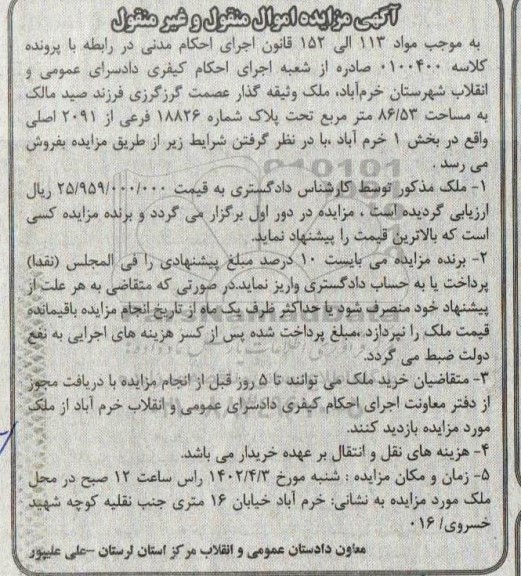 آگهی مزایده اموال منقول و غیر منقول
به موجب مواد ۱۱۳ الی ۱۵۲ قانون اجرای احکام مدنی در رابطه با پرونده
کلاسه ۰۱۰۰۴۰۰ صادره از شعبه اجرای احکام کیفری دادسرای عمومی و
انقلاب شهرستان خرم‌آباد، ملک وثیقه گذار عصمت گرزگرزی فرزند صید مالک
به مساحت ۸۶/۵۳ متر مربع تحت پلاک شماره ۱۸۸۲۶ فرعی از ۲۰۹۱ اصلی
واقع در بخش ۱ خرم آباد ،با در نظر گرفتن شرایط زیر از طریق مزایده بفروش
می رسد .
۱- ملک مذکور توسط کارشناس دادگستری به قیمت ۲۵/۹۵۹/۰۰۰/۰۰۰ ریال
ارزیابی گردیده است ، مزایده در دور اول برگزار می گردد و برنده مزایده کسی
است که بالاترین قیمت را پیشنهاد نماید.
۲- برنده مزایده می بایست ۱۰ درصد مبلغ پیشنهادی را فی المجلس (نقدا)
پرداخت یا به حساب دادگستری واریز نماید.در صورتی که متقاضی به هر علت از
پیشنهاد خود منصرف شود یا حداکثر ظرف یک ماه از تاریخ انجام مزایده باقیمانده
قیمت ملک را نپردازد ،مبلغ پرداخت شده پس از کسر هزینه های اجرایی به نفع
دولت ضبط می گردد.
۳- متقاضیان خرید ملک می توانند تا ۵ روز قبل از انجام مزایده با دریافت مجوز
از دفتر معاونت اجرای احکام کیفری دادسرای عمومی و انقلاب خرم آباد از ملک
مورد مزایده بازدید کنند.
۴- هزینه های نقل و انتقال بر عهده خریدار می باشد.
۵- زمان و مکان مزایده : شنبه مورخ ۱۴۰۲/۴/۳ راس ساعت ۱۲ صبح در محل
ملک مورد مزایده به نشانی: خرم آباد خیابان ۱۶ متری جنب نقلیه کوچه شهید
خسروی/ ۰۱۶
معاون دادستان عمومی و انقلاب مرکز استان لرستان –علی علیپور